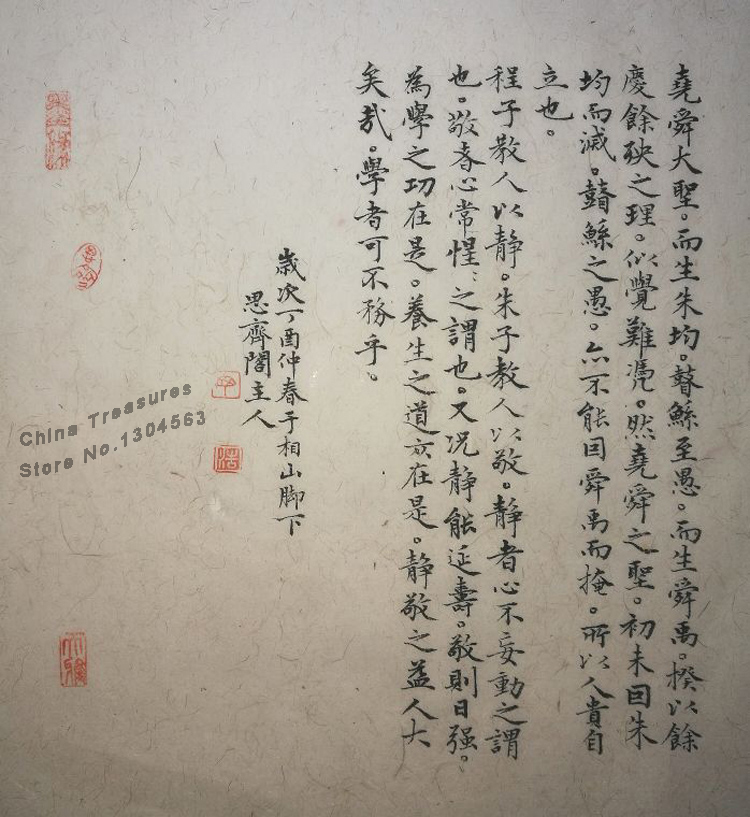 堯舜大聖。而生朱均。瞽鯀至愚。而生舜禹。揆以餘
慶餘殃之理。似覺難憑。然堯舜之聖。初未因朱
均而滅。瞽鯀之愚。亦不能因舜禹而掩。所以人貴自
立也。
程子教人以静。朱子教人以敬。静者心不妄動之謂
也。敬者心常惺々之謂也。又况静能延壽。敬則日强。
為學之功在是。養生之道亦在是。静敬之益人大
矣哉。學者可不務乎。
歲次丁酉仲春于相山脚下
思齊閣主人
China Treasures
Store No.1304563